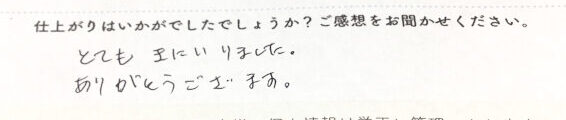 仕上がりはいかがでしたでしょうか？ご感想をお聞かせください。
とても 気にいりました。
ありがとうございます。